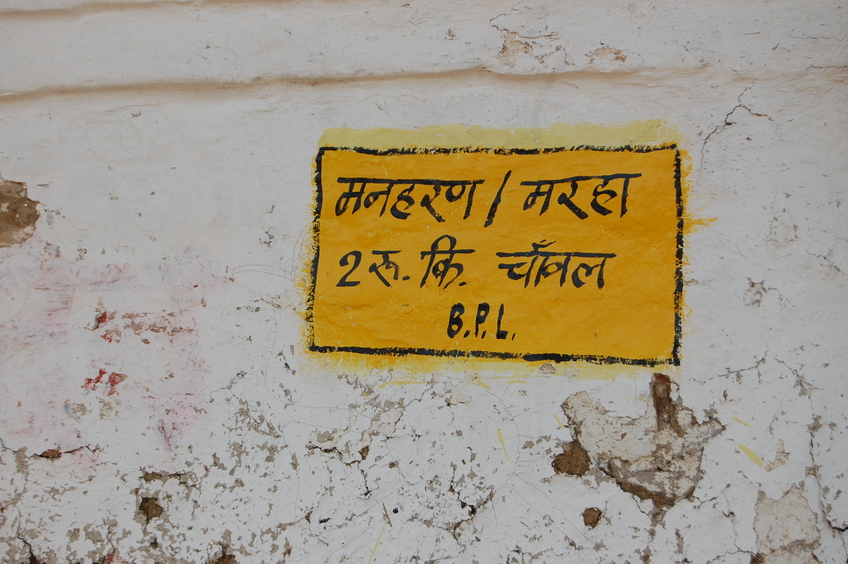 मनहरण / मरहा
2 रू. कि. चॉंवल
B.P.L.